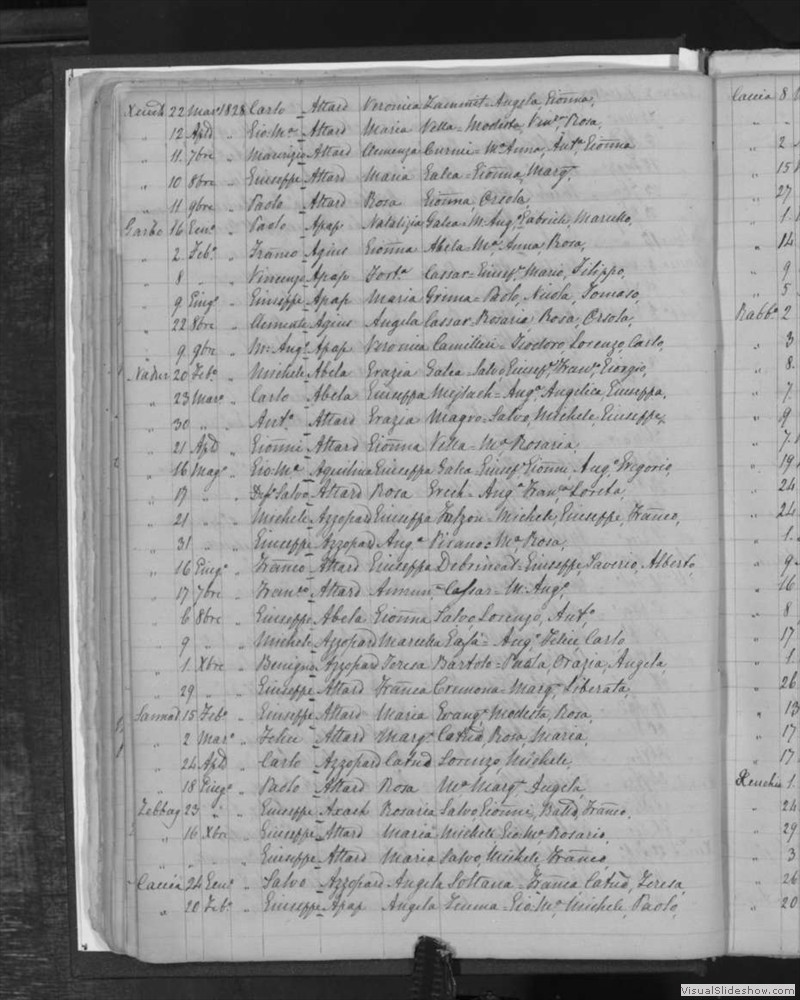 22 Mar 1828 Carlo Attard Veronica Zammit Angela Gionna,
12 Apl " Gio: Ma Attard Maria Vella = Modesta, Rosa,
" 11 7bre " Maurizio Attard Clemenza Curmi = Ma Anna, Anta Gionna
" 10 8bre " Giuseppe Attard Maria Galea = Gionna, Marga,
" 11 9bre " Paolo Attard Rosa Gionna, Orsola,
Garbo 16 Genº " Paolo Apap Natalizia Galea Angº Gabriele,
" 2 Febº " Franco Agius Gionna Abela Ma Anna, Rosa,
" 8 " " Vincenzo Apap Forta Cassar = Giusepe Mario, Filippo,
" 9 Giugº " Giuseppe Apap Maria Grima = Paolo, Nicola, Tomaso,
" 22 8bre " Clemente Agius Angela Cassar Rosaria, Rosa, Orsola,
" 9 9bre " M: Angº Apap Veronica Camilleri = Teodoro Lorenzo, Carlo,
Nadur 20 Febº " Michele Abela Grazia Galea Salvo Giorgio,
" 23 Marº " Carlo Abela Giuseppa = Anga Angelica, Giuseppa,
" 30 " " Antº Attard Grazia Magro = Salvo, Michele, Giuseppe,
" 21 Apl " Gionni Attard Gionna Vella = Ma Rosaria,
" 16 Magº " Gio: Ma Aquilina Giuseppa Galea Gionni Angº Grigorio,
" 17 " " Salvo Attard Rosa Grech = Anga Loreta,
" 21 " " Michele Azzopard Giuseppa Falzon = Michele, Giuseppe, Franco,
" 31 " " Giuseppe Azzopard Anga = Ma Rosa,
" 16 Giugº " Franco Attard Giuseppa Debrincat = Giuseppe, Saverio, Alberto,
" 17 7bre " Franco Attard = Cassar = M: Angº
" 6 8bre " Giuseppe Abela Gionna Salvo Lorenzo, Antº
" 9 " " Michele Azzopard = Angº Felice, Carlo
" 1 Xbre " Benigno Azzopard Teresa Bartolo = Paola, Grazia, Angela,
" 29 " " Giuseppe Attard Franca Cremona = Marga, Liberata,
Sannat 15 Febº " Giuseppe Attard Maria Modesta, Rosa,
" 2 Marº " Felice Attard Marga Rosa, Maria,
" 24 Apl " Carlo Azzopard Lorenzo, Michele,
" 18 Giugº " Paolo Attard Rosa Ma Marga Angela,
Zebbug 23 " " Giuseppe Axach Rosaria Salvo, Gionni, Franco,
" 16 Xbre " Giuseppe Attard Maria Michele Gio: Ma Rosario,
" " " Giuseppe Attard Maria Salvo, Michele, Franco,
Caccia 24 Genº " Salvo Azzopard Angela Soltana = Franca Teresa,
" 20 Febº " Giuseppe Apap Angela = Gio: Ma Michele, Paolo,
Caccia 8
"
" 2
" 15
" 27
" 1
" 14
" 9
" 5
Rabbº 2
" 3
" 8
" 7
" 9
" 7
" 19
" 24
" 24
" 1
" 9
" 16
" 8
" 17
" 1
" 26
" 13
" 17
" 17
1
" 24
" 29
" 3
" 26
" 20
VisualSlideshow.com